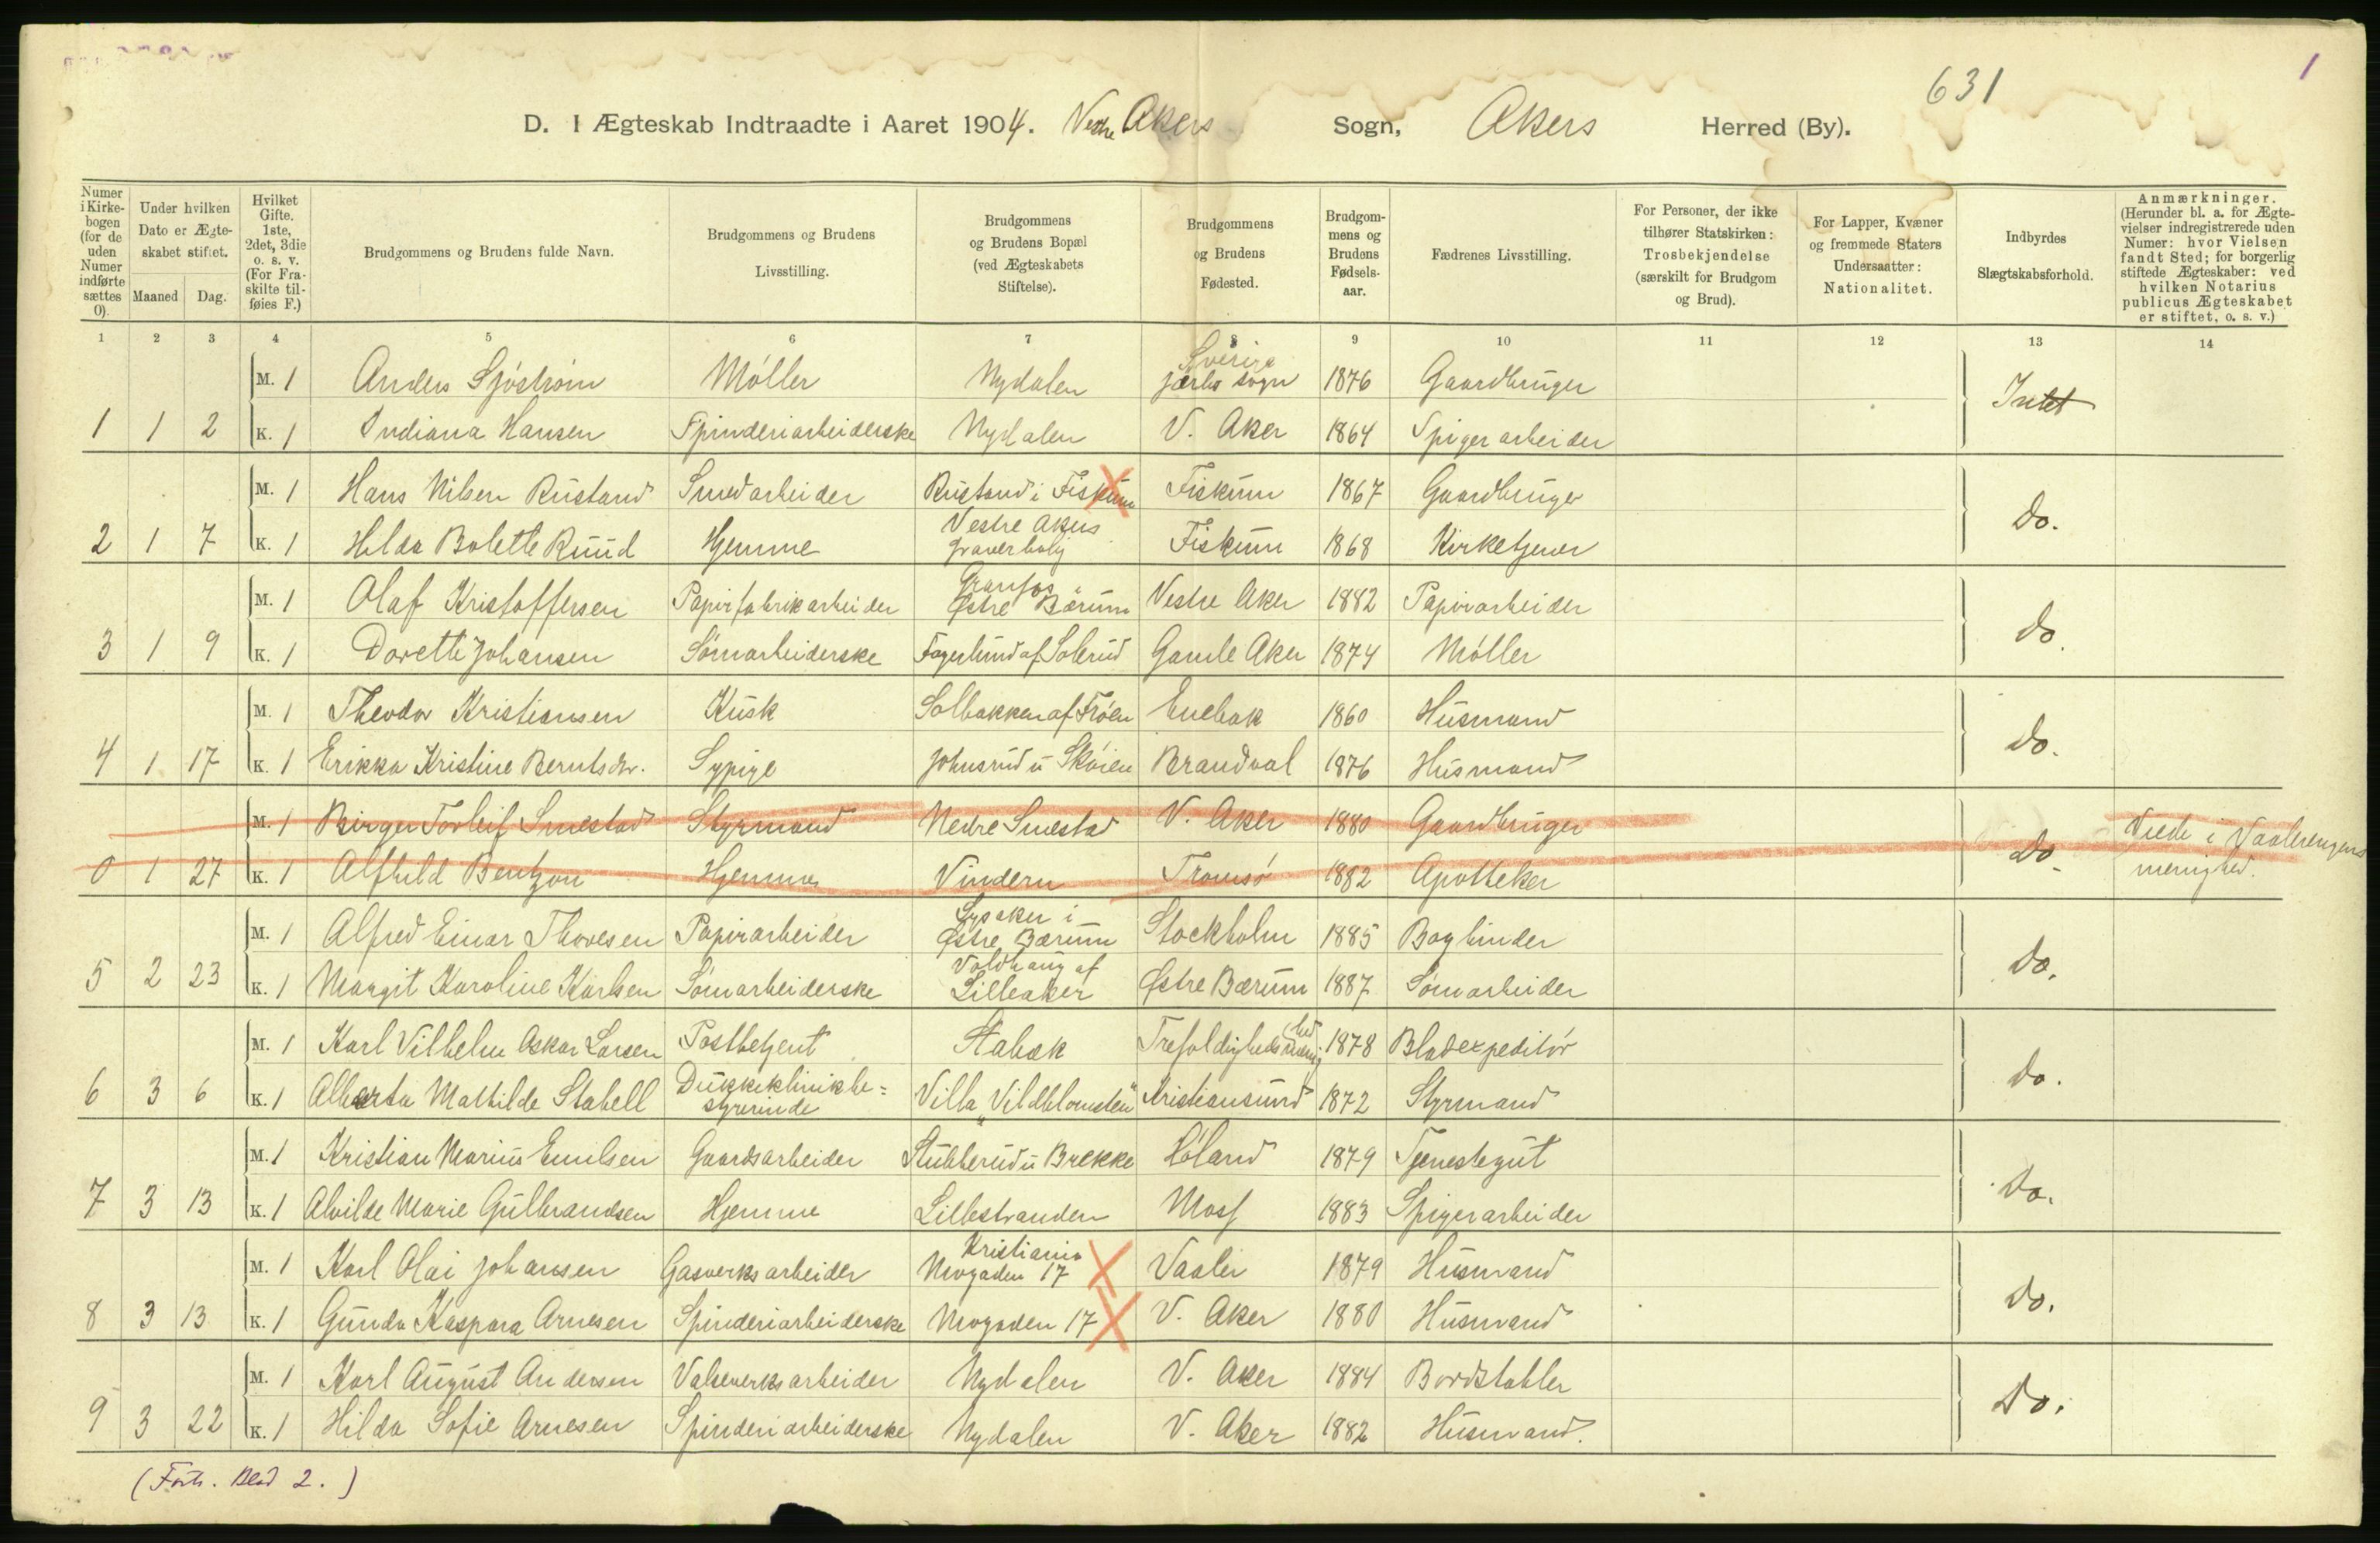 1
631
D. I Ægteskab Indtraadte i Aaret 1904. Vestre Akers Sogn, Akers Herred (By).
Numer i Kirkebogen (for de uden Numer indførte sættes 0). | Under hvilken Dato er Ægteskabet stiftet. Maaned Dag. | Hvilket Gifte. 1ste, 2det, 3die o. s. v. (For Fraskilte tilføies F.) | Brudgommens og Brudens fulde Navn. | Brudgommens og Brudens Livsstilling. | Brudgommens og Brudens Bopæl (ved Ægteskabets Stiftelse). | Brudgommens og Brudens Fødested. | Brudgommens og Brudens Fødselsaar. | Fædrenes Livsstilling. | For Personer, der ikke tilhører Statskirken: Trosbekjendelse (særskilt for Brudgom og Brud). | For Lapper, Kvæner og fremmede Staters Undersaatter: Nationalitet. | Indbyrdes Slægtskabsforhold. | Anmærkninger. (Herunder bl. a. for Ægtevielser indregistrerede uden Numer: hvor Vielsen fandt Sted; for borgerlig stiftede Ægteskaber: ved hvilken Notarius publicus Ægteskabet er stiftet, o. s. v.)
1 2 3 4 5 6 7 8 9 10 11 12 13 14
M. 1 Anders Sjöström Møller Nydalen Sverige Jærbo sogn 1876 Gaardbruger Intet
1 1 2 K. 1 Indiana Hansen Spinderiarbeiderske Nydalen V. Aker 1864 Spigerarbeider
M. 1 Hans Nilsen Rustand Smedarbeider Rustand i Fiskum Fiskum 1867 Gaardbruger Do.
2 1 7 K. 1 Hilda Bolette Ruud Hjemme Vestre Akers Graverbolig Fiskum 1868 Kirketjener
M. 1 Olaf Kristoffersen Papirfabrikarbeider Granfos Østre Bærum Vestre Aker 1882 Papirarbeider Do.
3 1 9 K. 1 Dorette Johansen Sømarbeiderske Fagerlund af Sollerud Gamle Aker 1874 Møller
M. 1 Theodor Kristiansen Kusk Solbakken af Frøen Enebak 1860 Husmand Do.
4 1 17 K. 1 Erikka Kristine Berntsdtr. Sypige Johnsrud u Skøien Brandval 1876 Husmand
M. 1 Birger Torleif Smestad Styrmand Nedre Smestad V. Aker 1880 Gaardbruger Do. Viede i Vaalerengens
0 1 27 K. 1 Alfhild Bentzon Hjemme Vindern Tromsø 1882 Apotheker menighed.
M. 1 Alfred Einar Thoresen Papirarbeider Lysaker i Østre Bærum Stockholm 1885 Bogbinder Do.
5 2 23 K. 1 Margit Karoline Karlsen Sømarbeiderske Voldhaug af Lilleaker Østre Bærum 1887 Sømarbeider
M. 1 Karl Vilhelm Oskar Larsen Postbetjent Stabæk Trefoldigheds menighed 1878 Bladexpeditør Do.
6 3 6 K. 1 Alberta Mathilde Stabell Dukkeklinikbestyrerinde Villa „Vildblomsten“ Kristiansund 1872 Styrmand
M. 1 Kristian Marius Emilsen Gaardsarbeider Stubberud u Brekke Høland 1879 Tjenestegut Do.
7 3 13 K. 1 Alvilde Marie Gulbrandsen Hjemme Lillestranden Moss 1883 Spigerarbeider
M. 1 Karl Olai Johansen Gasverksarbeider Kristiania Mogaden 17 Vaaler 1879 Husmand Do.
8 3 13 K. 1 Gunda Kaspara Arnesen Spinderiarbeiderske Mogaden 17 V. Aker 1880 Husmand
M. 1 Karl August Andersen Valseverksarbeider Nydalen V. Aker 1884 Bordstabler Do.
9 3 22 K. 1 Hilda Sofie Arnesen Spinderiarbeiderske Nydalen V. Aker 1882 Husmand.
(Forts. Blad 2.)